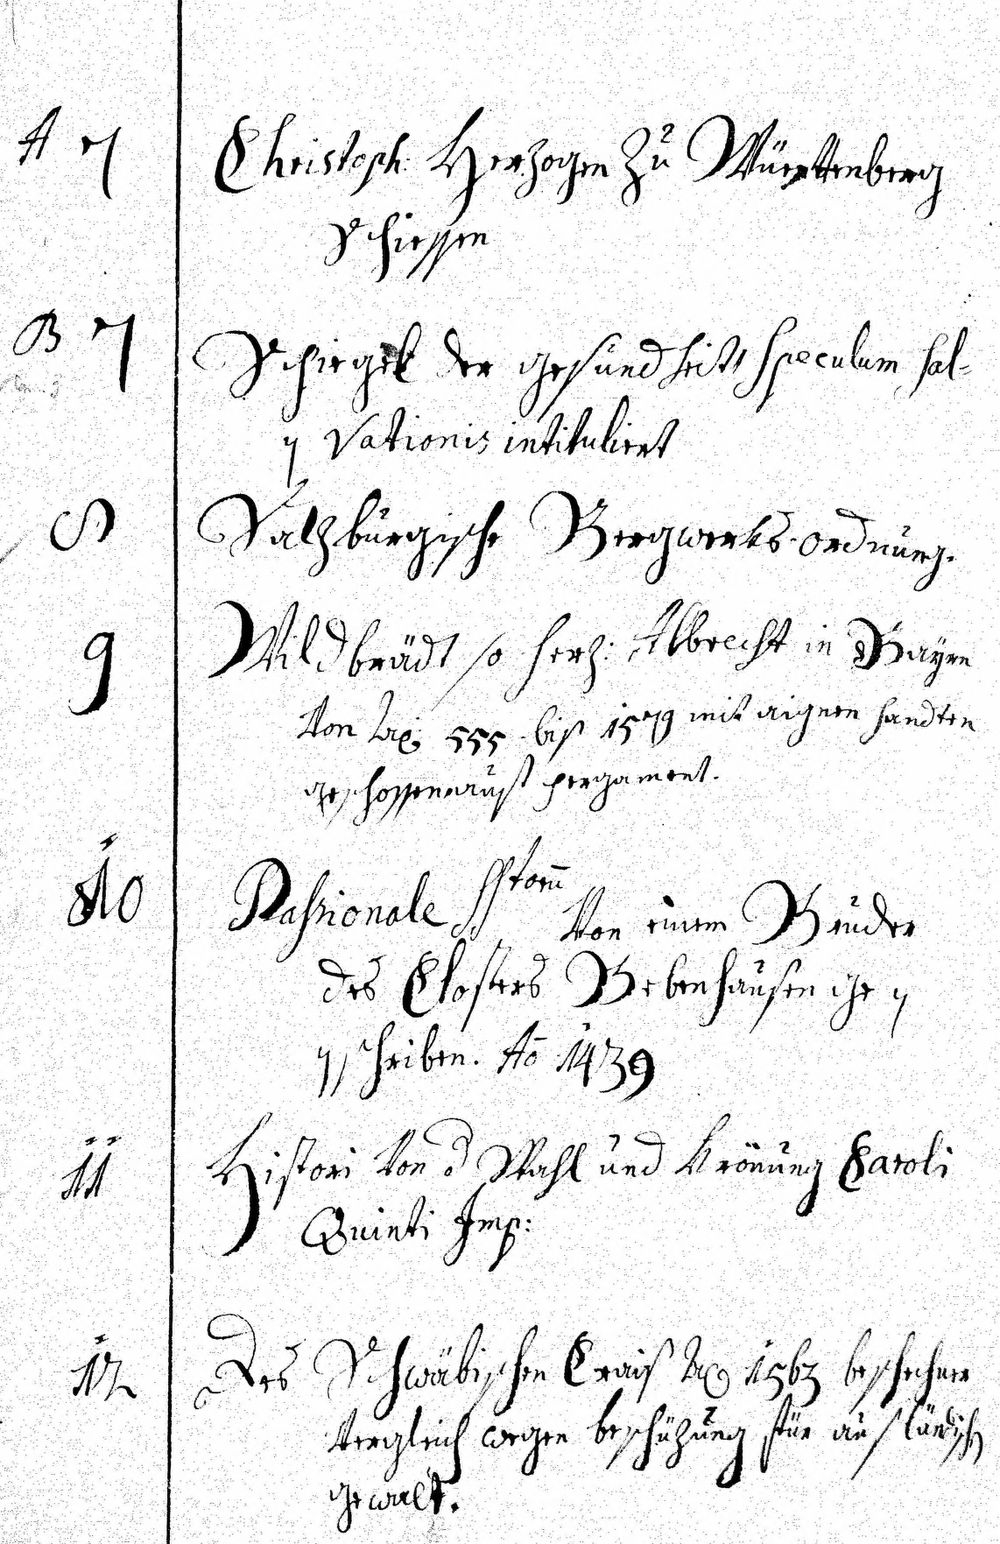 A 7 Christoph: Herzogen zu Württenberg
Schiessen
B 7 Schiegel der gesundheitt speculum sal-
vationis intituliert
8 Saltzburgische Bergwerks-ordnung.
9 Wildbrädt so herz: Albrecht in Bayrn
Von 555 biß 1579 mit aignen handten
geschossen auff pergament.
10 Passionale SStorū Von einem Bruder
des Closters Bebenhausen ge
schriben. Aō 1439
11 Histori Von d Wahl und Krönung Caroli
Quinti Imp:
12 Des Schwäbischen Craiß 1563 beschechner
Vergleich wegen beschüzung für außländisch
gewalt.